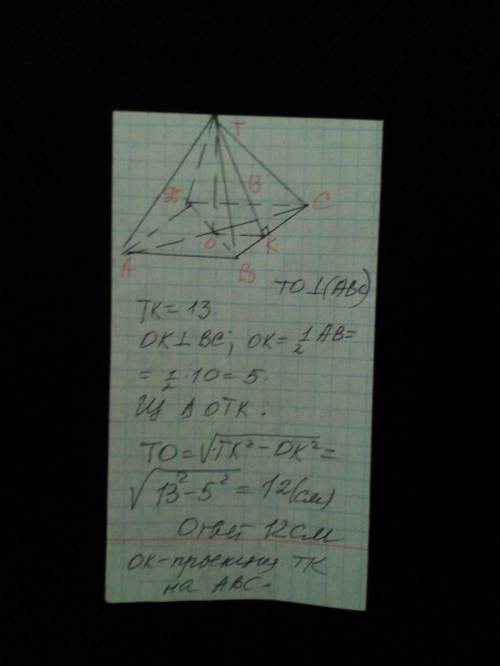 T
13
D
C
O
K
A
B
TO⊥(ABC)
TK=13
OK⊥BC; OK=½AB=
=½·10=5
Из Δ OTK:
TO=√TK²-OK²=
√13²-5²=12(см)
Ответ 12см
OK-проекция TK
на ABC.